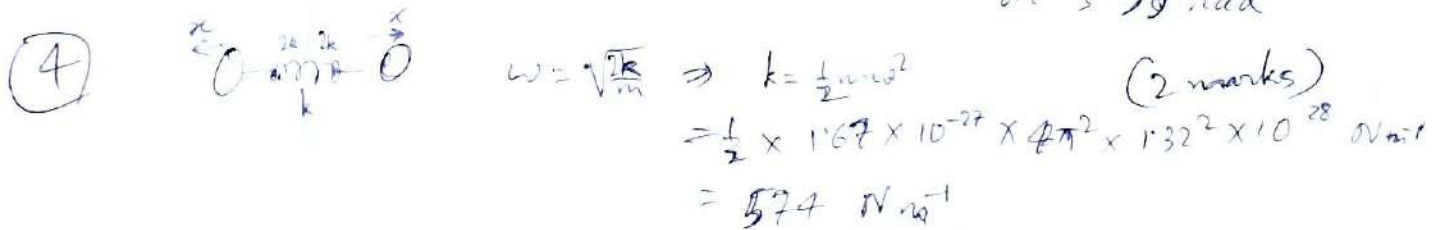 ④
x x
2k 2k
k
ω = √(2k/m) ⇒ k = ½mω² (2 marks)
= ½ × 1·67 × 10⁻²⁷ × 4π² × 1·32² × 10²⁸ Nm⁻¹
= 574 N m⁻¹